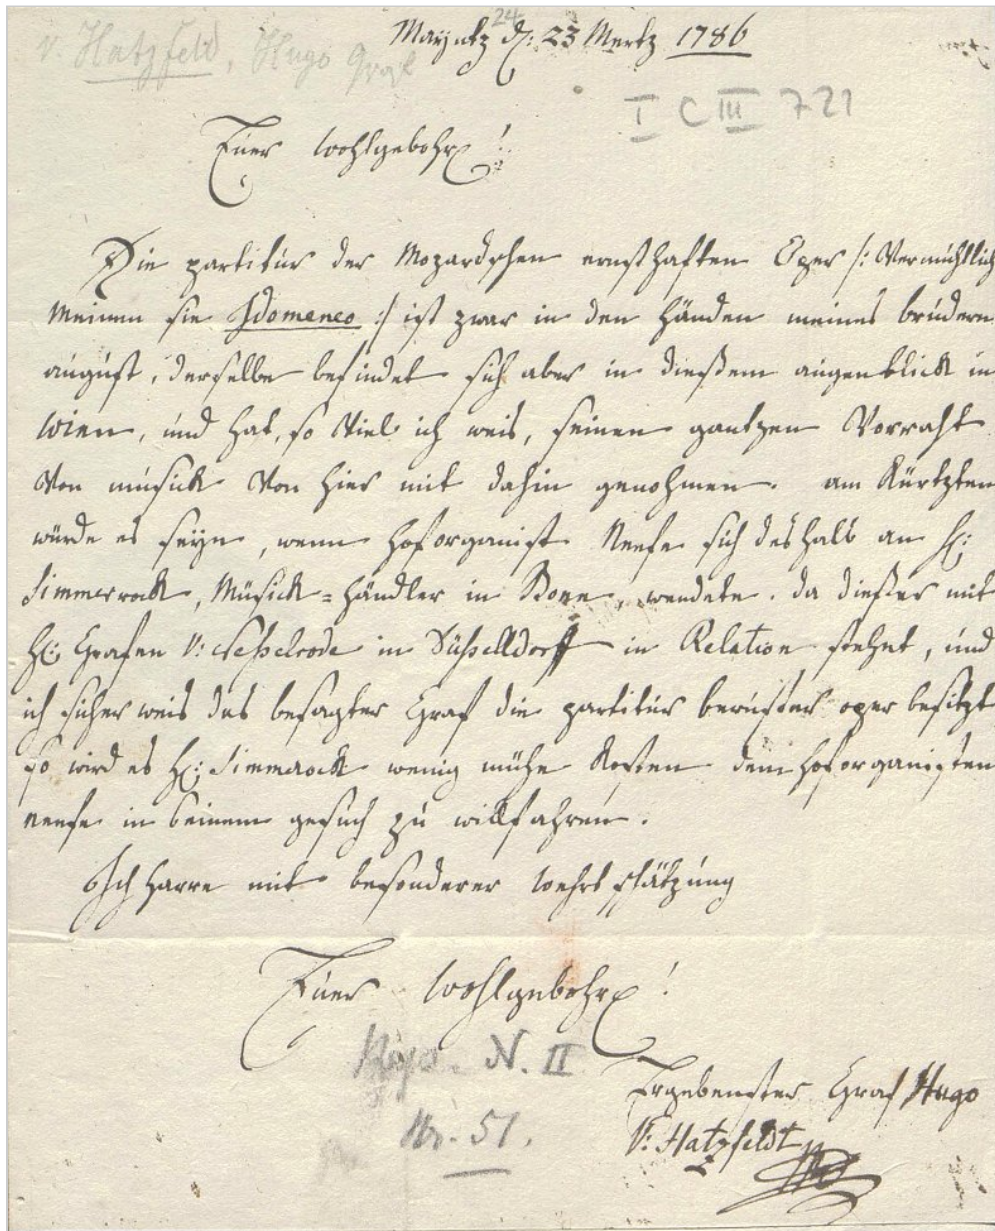 24
Mayntz d: 23 Mertz 1786
v. Hatzfeld, Hugo Graf
I C III 721
Euer Wohlgebohrn!
Die partitur der Mozardschen ernsthaften Oper /: Vermuthlich
meinen sie Idomeneo :/ ist zwar in den Händen meines bruders
august, derselbe befindet sich aber in dießem augenblick in
Wien, und hat, so Viel ich weis, seinen gantzen Vorraht
Von musick Von hier mit dahin genohmen. am Kürtzten
würde es seyn, wenn hoforganist Neefe sich deshalb an H:
Simmrock, Musick=händler in Bonn, wendete. da dießer mit
H: Grafen V: Neßelrode in Düßelldorff in Relation stehet, und
ich sicher weis das besagter Graf die partitur berührter oper besitzt
so wird es H: Simmrock wenig mühe kosten dem hoforganisten
neefe in seinem gesuch zu willfahren.
Ich Harre mit besonderer Wehrtschätzung
Euer Wohlgebohrn!
N. II
Ergebenster Graf Hugo
Nr. 51.
V: Hatzfeldt